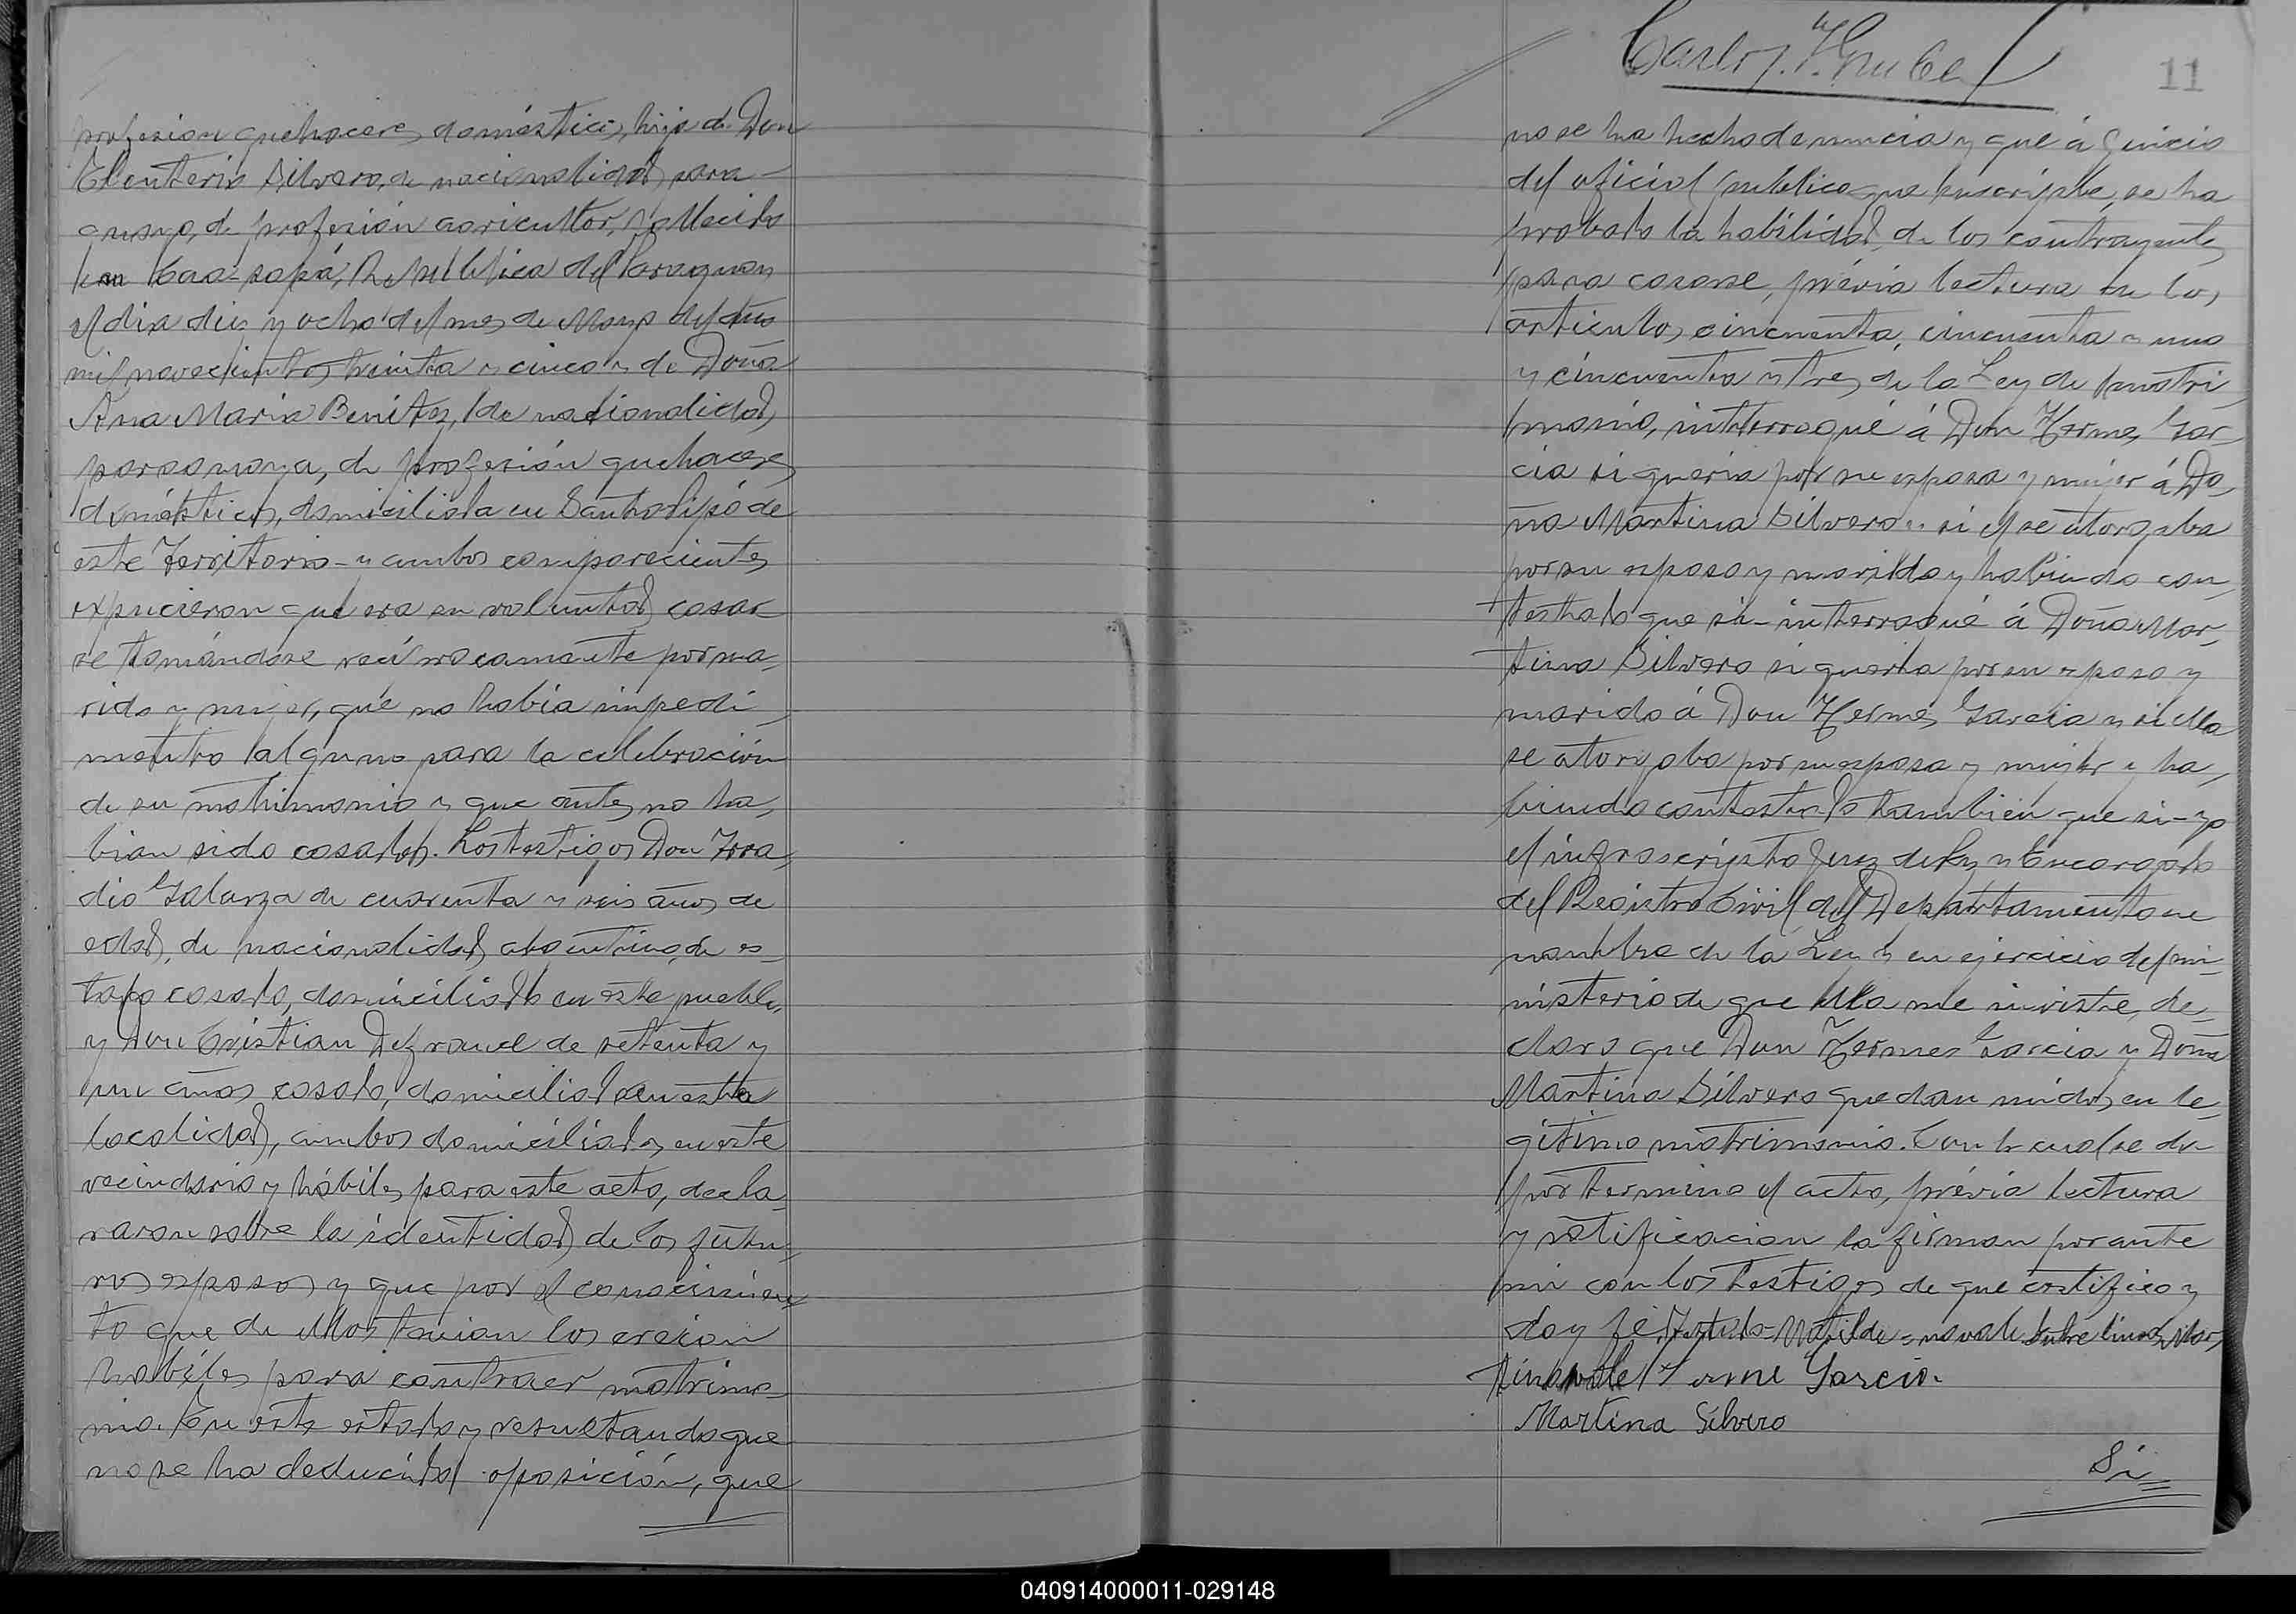 profesion quehaceres domésticos, hija de Don
Eleuterio Silvero, de nacionalidad para-
guayo, de profesión agricultor, fallecido
en Caa-zapá, República del Paraguay
el dia diez y ocho del mes de Mayo del año
mil novecientos treinta y cinco y de Doña
Ana Maria Benitez, de nacionalidad
paraguaya, de profesión quehaceres
domésticos, domiciliada en Santo Pipó de
este Territorio - y ambos comparecientes
expucieron que era su voluntad casar
se tomándose recíprocamente por ma,
rido y mujer, que no había impedi,
mento alguno para la celebración
de su matrimonio y que antes no ha,
bian sido casados. Los testigos Don Irra,
dio Galarza de cuarenta y seis años de
edad, de nacionalidad argentino, de es-
tado casado, domiciliado en este pueblo,
y Don Cristian de setenta y
un años casado, domiciliado en esta
localidad, ambos domiciliados en este
vecindario y hábiles para este acto, decla,
raron sobre la identidad de los futu,
ros esposos y que por el conocimien
to que de ellos tenian los creian
habiles para contraer matrimo-
nio. En este estado y resultando que
no se ha deducido oposición, que
Carlos
11
no se ha hecho denuncia y que á juicio
del oficial publico que suscripbe, se ha
probado la habilidad de los contrayentes
para casarse, prévia lectura de los
articulos cincuenta, cincuenta y uno
y cincuenta y tres de la Ley de Matri
monio, interrogué á Don Hermes Gar-
cia si queria por su esposa y mujer á Do,
ña Martina Silvero y si él se otorgaba
por su esposo y marido y habiendo con,
testado que si - interrogué á Doña Mar,
tina Silvero si queria por su esposo y
marido á Don Hermes Garcia y si ella
se otorgaba por su esposa y mujer y ha,
biendo contestado tambien que si - yo
el infrascripto Juez de Paz y Encargado
del Registro Civil del Departamento en
nombre de la Ley y en ejercicio del mi-
nisterio de que ella me inviste, de-
claro que Don Hermes Garcia y Doña
Martina Silvero quedan unidos en le,
gitimo matrimonio. Con lo cual se dá
por termino el acto, prévia lectura
y ratificacion la firman por ante
mi con los testigos de que certifico y
doy fé. Testado - Matilde - no vale. Entre lineas, Mar,
tina vale Garcia.
Martina Silvero
Si
040914000011-029148